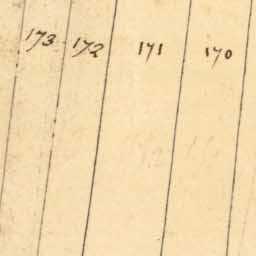 173 172 171 170